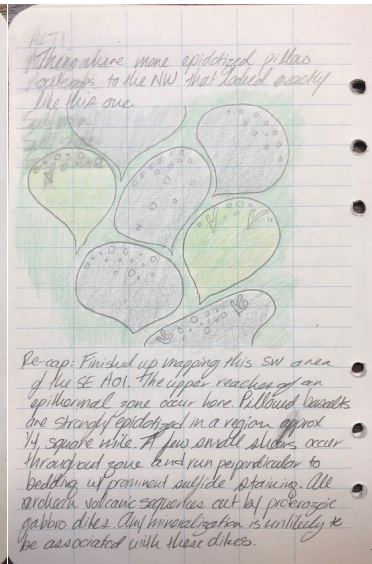 There where more epidotized pillow
outcrops to the NW that looked exactly
like this one.
Re-cap: Finished up mapping this SW area
of the SE AOI. The upper reaches of an
epithermal zone occur here. Pillowed basalts
are strongly epidotized in a region approx
1/4 square mile. A few small shears occur
throughout zone and run perpendicular to
bedding w/ prominent sulfide staining. All
archean volcanic sequences cut by proterozoic
gabbro dikes. Any mineralization is unlikely to
be associated with these dikes.